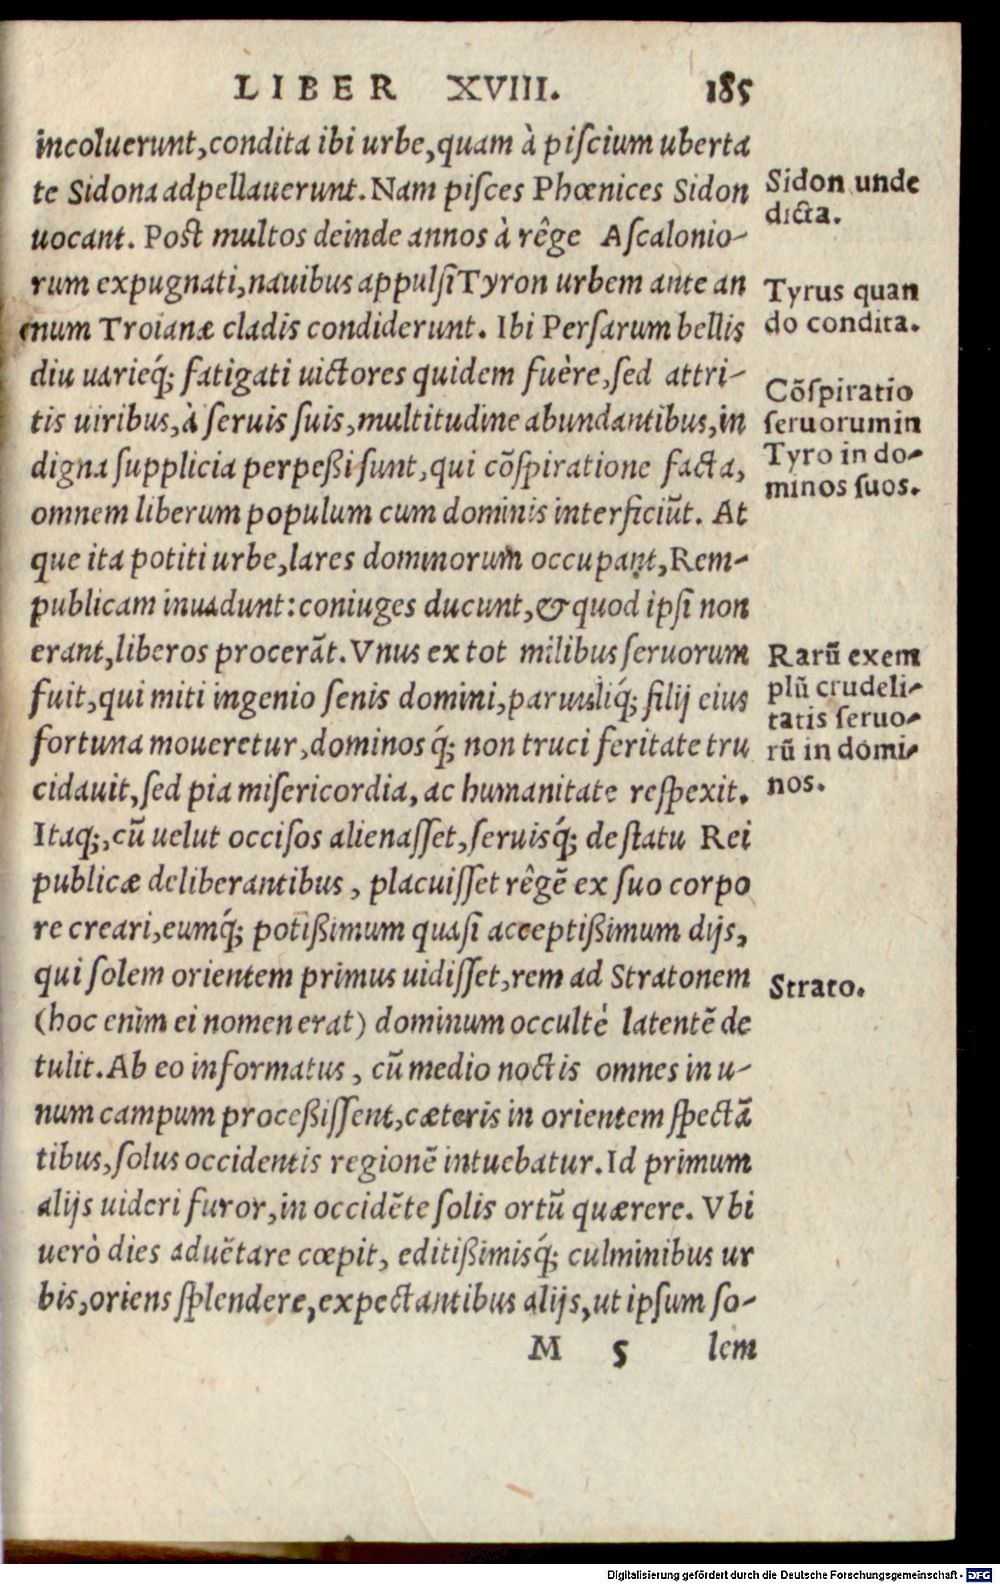 LIBER XVIII. 185
incoluerunt, condita ibi urbe, quam à piſcium uberta
te Sidona adpellauerunt. Nam piſces Phœnices Sidon
uocant. Poſt multos deinde annos à rêge Aſcalonio-
rum expugnati, nauibus appulſi Tyron urbem ante an
num Troianæ cladis condiderunt. Ibi Perſarum bellis
diu uarieq́; fatigati uictores quidem fuêre, ſed attri-
tis uiribus, à ſeruis ſuis, multitudine abundantibus, in
digna ſupplicia perpeßi ſunt, qui cõſpiratione facta,
omnem liberum populum cum dominis interficiũt. At
que ita potiti urbe, lares dominorum occupant, Rem-
publicam inuadunt: coniuges ducunt, & quod ipſi non
erant, liberos procerãt. Vnus ex tot milibus ſeruorum
fuit, qui miti ingenio ſenis domini, paruuliq́; filij eius
fortuna moueretur, dominos q́; non truci feritate tru
cidauit, ſed pia miſericordia, ac humanitate reſpexit.
Itaq́;, cũ uelut occiſos alienaſſet, ſeruisq́; de ſtatu Rei
publicæ deliberantibus, placuiſſet rêgẽ ex ſuo corpo
re creari, eumq́; potißimum quaſi acceptißimum dijs,
qui ſolem orientem primus uidiſſet, rem ad Stratonem
(hoc enim ei nomen erat) dominum occultè latentẽ de
tulit. Ab eo informatus, cũ medio noctis omnes in u-
num campum proceßiſſent, cæteris in orientem ſpectã
tibus, ſolus occidentis regionẽ intuebatur. Id primum
alijs uideri furor, in occidẽte ſolis ortũ quærere. Vbi
uerò dies aduẽtare cœpit, editißimisq́; culminibus ur
bis, oriens ſplendere, expectantibus alijs, ut ipſum ſo-
M 5 lem
Sidon unde
dicta.
Tyrus quan
do condita.
Cõſpiratio
ſeruorum in
Tyro in do-
minos ſuos.
Rarũ exem
plũ crudeli-
tatis ſeruo-
rũ in domi-
nos.
Strato.
Digitalisierung gefördert durch die Deutsche Forschungsgemeinschaft - DFG